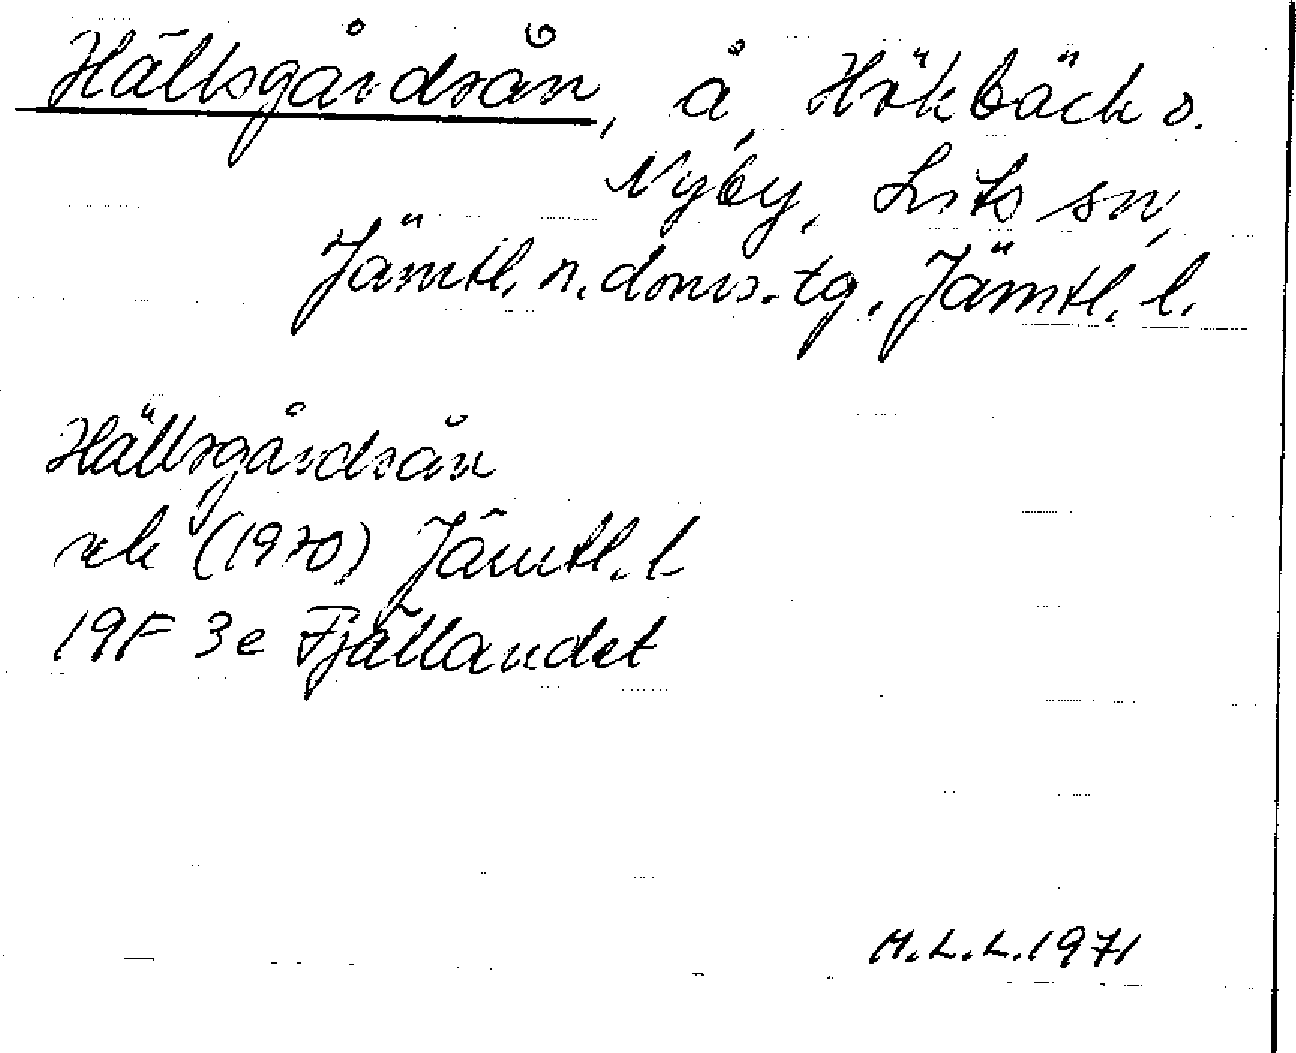 Hällsgårdsån, å, Hökbäck o.
Nyby, Lits sn,
Jämtl. n. doms. tg, Jämtl. l.
Hällsgårdsån
rek (1970) Jämtl. l
19F 3e Fjällandet
M.L.L. 1971